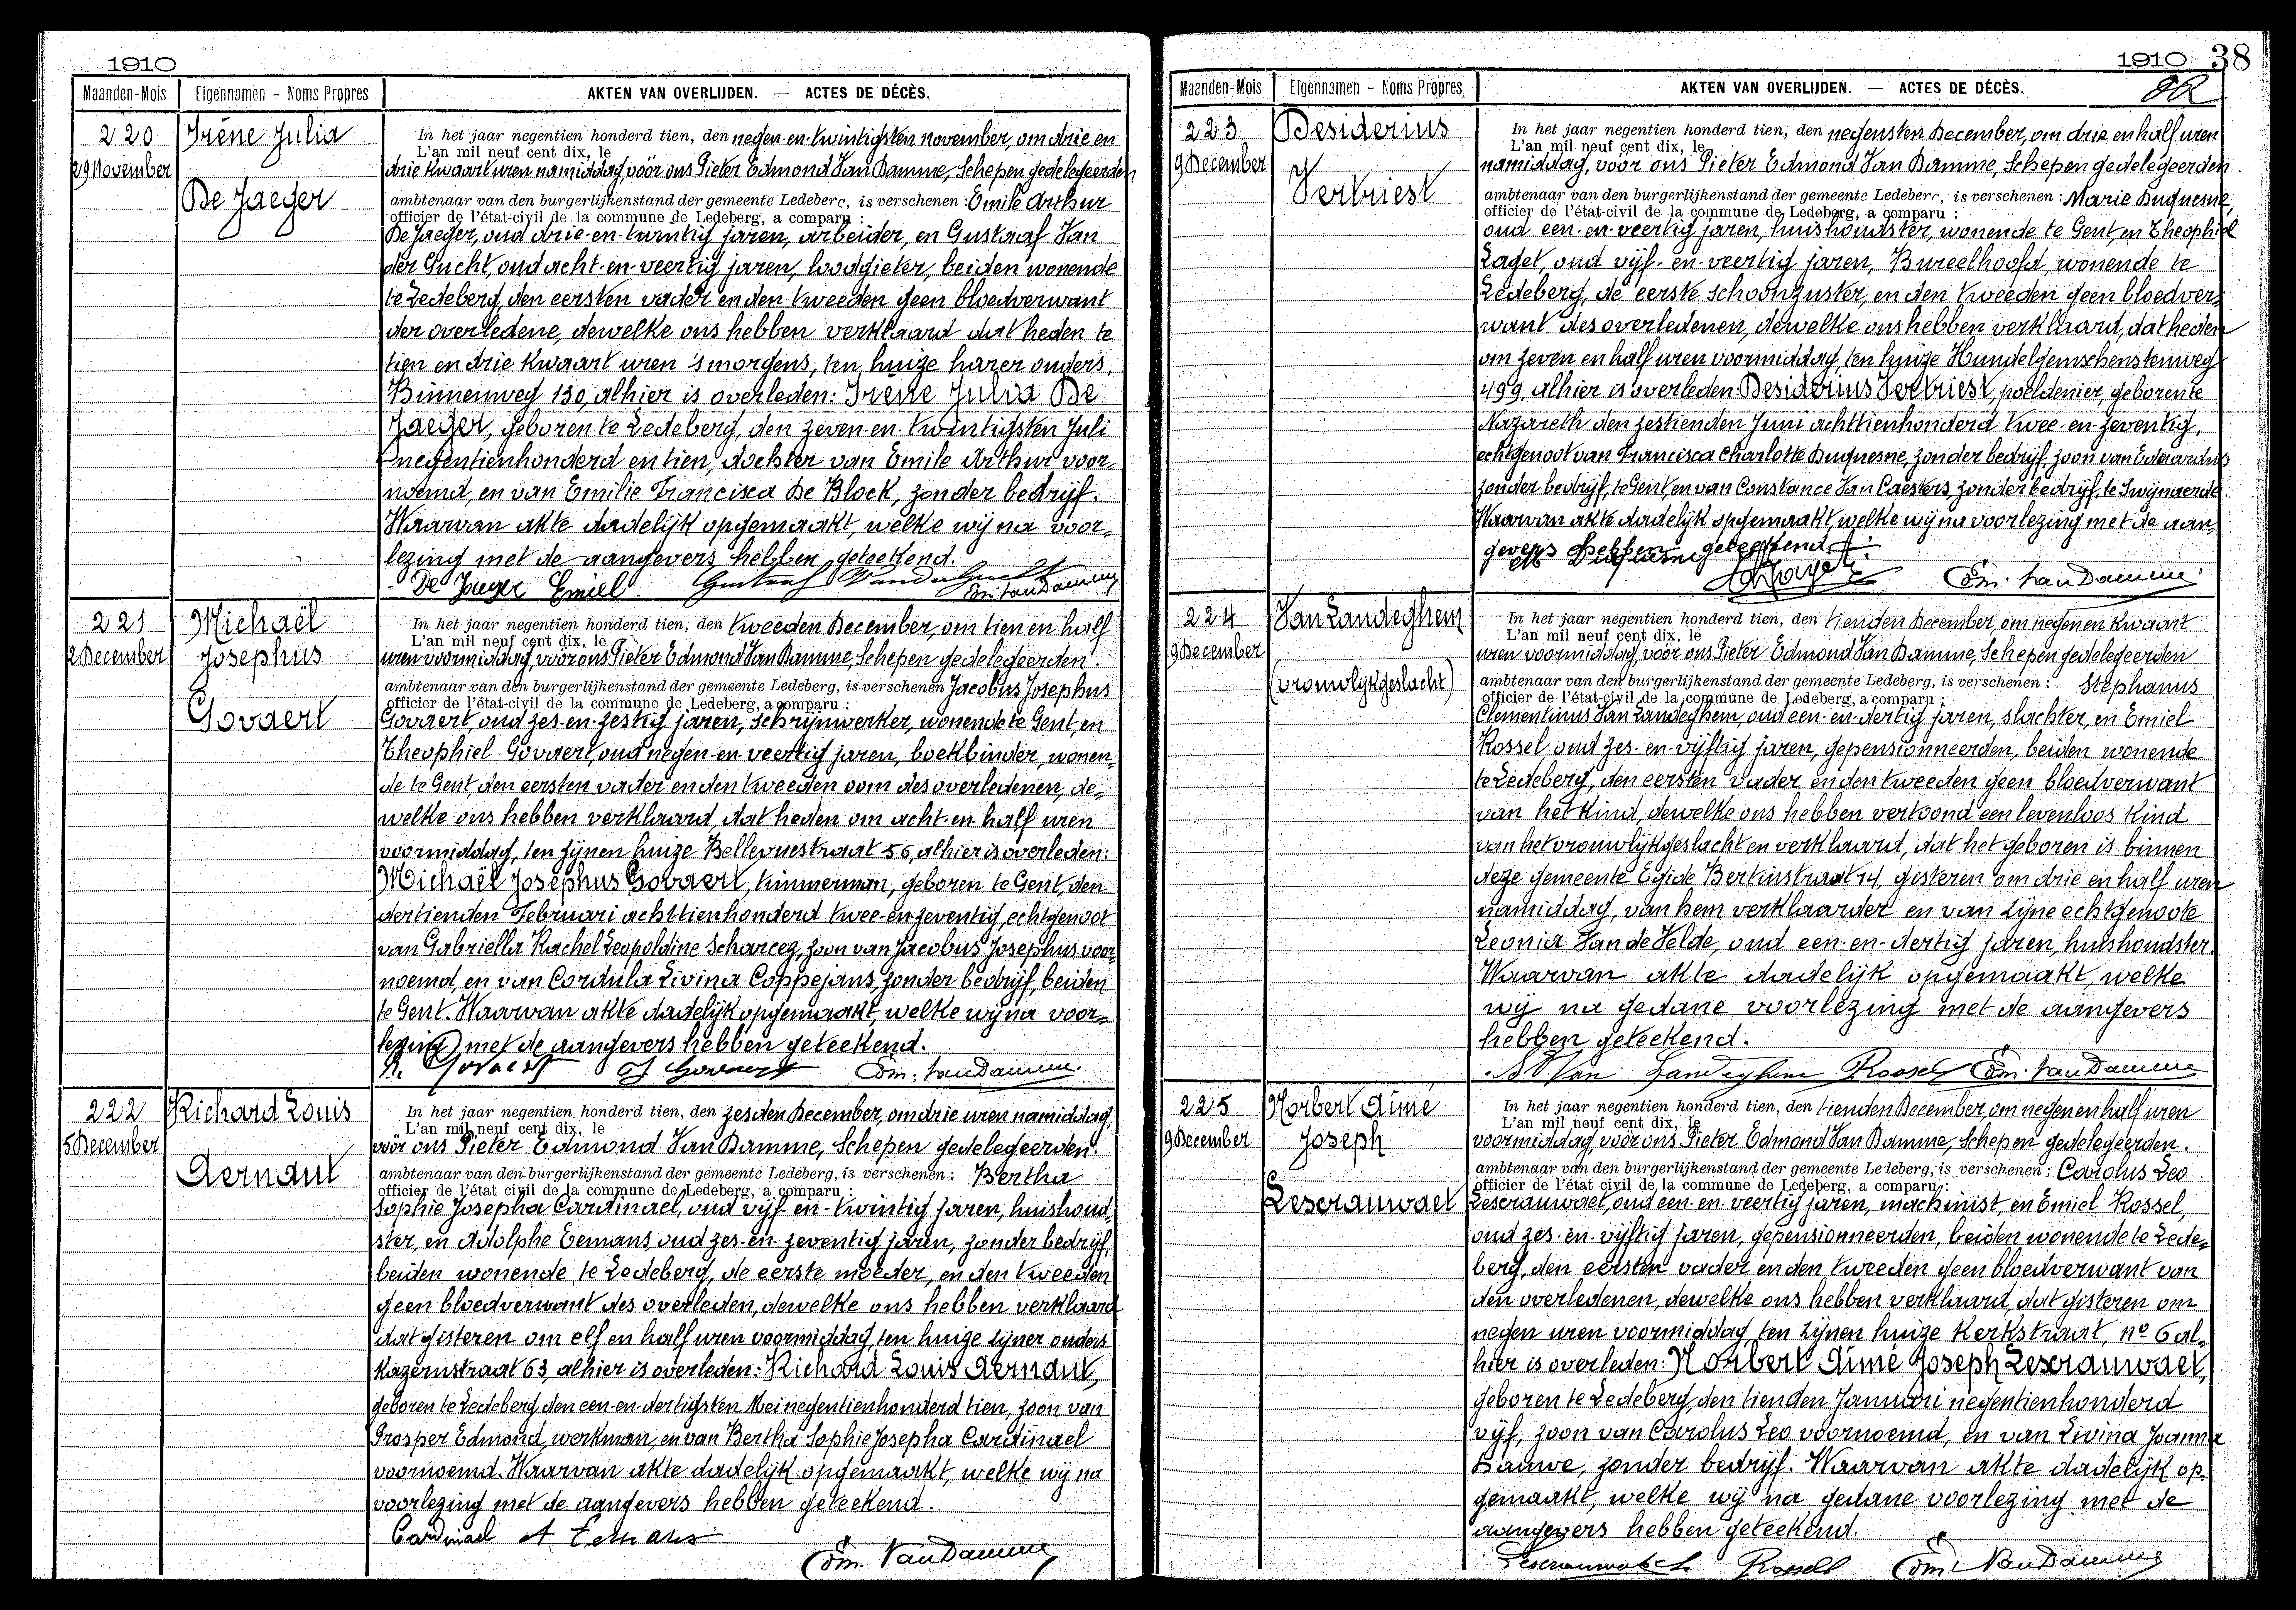 1910
Maanden-Mois Eigennamen - Noms Propres AKTEN VAN OVERLIJDEN. — ACTES DE DÉCÈS.
220
29 November
Irène Julia
De Jaeger
In het jaar negentien honderd tien, den negen-en-twintigsten november, om drie en
L'an mil neuf cent dix, le
drie kwaart uren namiddag, vóór ons Pieter Edmond Van Damme, Schepen gedelegeerden
ambtenaar van den burgerlijkenstand der gemeente Ledeberg, is verschenen: Emile Arthur
officier de l'état-civil de la commune de Ledeberg, a comparu :
De Jaeger, oud drie-en-twintig jaren, arbeider, en Gustaaf Van
der Gucht, oud acht-en-veertig jaren, loodgieter, beiden wonende
te Ledeberg, den eersten vader en den tweeden geen bloedverwant
der overledene, dewelke ons hebben verklaard dat heden te
tien en drie kwaart uren 's morgens, ten huize harer ouders,
Binnenweg 130, alhier is overleden: Irène Julia De
Jaeger, geboren te Ledeberg, den zeven-en-twintigsten Juli
negentienhonderd en tien, dochter van Emile Arthur voor-
noemd, en van Emilie Francisca De Block, zonder bedrijf.
Waarvan akte dadelijk opgemaakt, welke wij na voor-
lezing met de aangevers hebben geteekend.
De Jaeger Emiel. Gustaaf Vandergucht Edm. Van Damme
221
2 December
Michaël
Josephus
Govaert
In het jaar negentien honderd tien, den tweeden December, om tien en half
L'an mil neuf cent dix, le
uren voormiddag, vóór ons Pieter Edmond Van Damme, Schepen gedelegeerden.
ambtenaar van den burgerlijkenstand der gemeente Ledeberg, is verschenen Jacobus Josephus
officier de l'état-civil de la commune de Ledeberg, a comparu :
Govaert, oud zes-en-zestig jaren, schrijnwerker, wonende te Gent, en
Theophiel Govaert, oud negen-en-veertig jaren, boekbinder, wonen-
de te Gent, den eersten vader en den tweeden oom des overledenen, de-
welke ons hebben verklaard, dat heden om acht-en-half uren
voormiddag, ten zijnen huize Bellevuestraat 56, alhier is overleden:
Michaël Josephus Govaert, timmerman, geboren te Gent, den
dertienden Februari achttienhonderd twee-en-zeventig, echtgenoot
van Gabriella Rachel Leopoldine Scharceg, zoon van Jacobus Josephus voor-
noemd, en van Cordula Livina Coppejans, zonder bedrijf, beiden
te Gent. Waarvan akte dadelijk opgemaakt, welke wij na voor-
lezing met de aangevers hebben geteekend.
Govaert Govaert Edm. Van Damme
222
5 December
Richard Louis
Aernaut
In het jaar negentien honderd tien, den zesden December, om drie uren namiddag,
L'an mil neuf cent dix, le
vóór ons Pieter Edmond Van Damme, Schepen gedelegeerden.
ambtenaar van den burgerlijkenstand der gemeente Ledeberg, is verschenen: Bertha
officier de l'état civil de la commune de Ledeberg, a comparu :
Sophie Josepha Cardinael, oud vijf-en-twintig jaren, huishoud-
ster, en Adolphe Eemans, oud zes-en-zeventig jaren, zonder bedrijf,
beiden wonende te Ledeberg, de eerste moeder, en den tweeden
geen bloedverwant des overleden, dewelke ons hebben verklaard
dat gisteren om elf en half uren voormiddag, ten huize zijner ouders
Kazernstraat 63, alhier is overleden: Richard Louis Aernaut,
geboren te Ledeberg, den een-en-dertigsten Mei negentienhonderd tien, zoon van
Prosper Edmond, werkman, en van Bertha Sophie Josepha Cardinael
voornoemd. Waarvan akte dadelijk opgemaakt, welke wij na
voorlezing met de aangevers hebben geteekend.
Cardinael A Eemans
Edm. Van Damme
1910 38
Maanden-Mois Eigennamen - Noms Propres AKTEN VAN OVERLIJDEN. — ACTES DE DÉCÈS.
223
9 December
Desiderius
Vertriest
In het jaar negentien honderd tien, den negensten December, om drie en half uren
L'an mil neuf cent dix, le
namiddag, vóór ons Pieter Edmond Van Damme, Schepen gedelegeerden.
ambtenaar van den burgerlijkenstand der gemeente Ledeberg, is verschenen: Marie Duquesne,
officier de l'état-civil de la commune de Ledeberg, a comparu :
oud een-en-veertig jaren, huishoudster, wonende te Gent, en Theophiel
Laget, oud vijf-en-veertig jaren, Bureelhoofd, wonende te
Ledeberg, de eerste schoonzuster, en den tweeden geen bloedver-
want des overledenen, dewelke ons hebben verklaard, dat heden
om zeven en half uren voormiddag, ten huize Hundelgemschensteenweg
499, alhier is overleden Desiderius Vertriest, poeldenier, geboren te
Nazareth den zestienden Juni achttienhonderd twee-en-zeventig,
echtgenoot van Francisca Charlotte Duquesne, zonder bedrijf, zoon van Eduardus
zonder bedrijf, te Gent, en van Constance Van Caesters, zonder bedrijf, te Swijnaerde.
Waarvan akte dadelijk opgemaakt, welke wij na voorlezing met de aan-
gevers hebben geteekend.
M Duquesne
Edm. Van Damme
224
9 December
Van Landeghem
(vrouwlijkgeslacht)
In het jaar negentien honderd tien, den tienden December, om negen en kwaart
L'an mil neuf cent dix, le
uren voormiddag, vóór ons Pieter Edmond Van Damme, Schepen gedelegeerden
ambtenaar van den burgerlijkenstand der gemeente Ledeberg, is verschenen: Stephanus
officier de l'état-civil de la commune de Ledeberg, a comparu :
Clementinus Van Landeghem, oud een-en-dertig jaren, slachter, en Emiel
Rossel oud zes-en-vijftig jaren, gepensionneerden, beiden wonende
te Ledeberg, den eersten vader en den tweeden geen bloedverwant
van het kind, dewelke ons hebben vertoond een levenloos kind
van het vrouwlijkgeslacht en verklaard, dat het geboren is binnen
deze gemeente Egide Bertinstraat 14, gisteren om drie en half uren
namiddag, van hem verklaarder en van zijne echtgenoote
Leonia Van de Velde, oud een-en-dertig jaren, huishoudster.
Waarvan akte dadelijk opgemaakt, welke
wij na gedane voorlezing met de aangevers
hebben geteekend.
Van Landeghem Rossel Edm. Van Damme
225
9 December
Norbert Aimé
Joseph
Lescrauwaet
In het jaar negentien honderd tien, den tienden December, om negen en half uren
L'an mil neuf cent dix, le
voormiddag, vóór ons Pieter Edmond Van Damme, Schepen gedelegeerden.
ambtenaar van den burgerlijkenstand der gemeente Ledeberg, is verschenen: Carolus Leo
officier de l'état civil de la commune de Ledeberg, a comparu :
Lescrauwaet, oud een-en-veertig jaren, machinist, en Emiel Rossel,
oud zes-en-vijftig jaren, gepensionneerden, beiden wonende te Lede-
berg, den eersten vader en den tweeden geen bloedverwant van
den overledenen, dewelke ons hebben verklaard, dat gisteren om
negen uren voormiddag, ten zijnen huize Kerkstraat, n° 6 al-
hier is overleden: Norbert Aimé Joseph Lescrauwaet,
geboren te Ledeberg, den tienden Januari negentienhonderd
vijf, zoon van Carolus Leo voornoemd, en van Livina Joanna
Dauwe, zonder bedrijf. Waarvan akte dadelijk op-
gemaakt, welke wij na gedane voorlezing met de
aangevers hebben geteekend.
Lescrauwaet Ch Rossel Edm. Van Damme